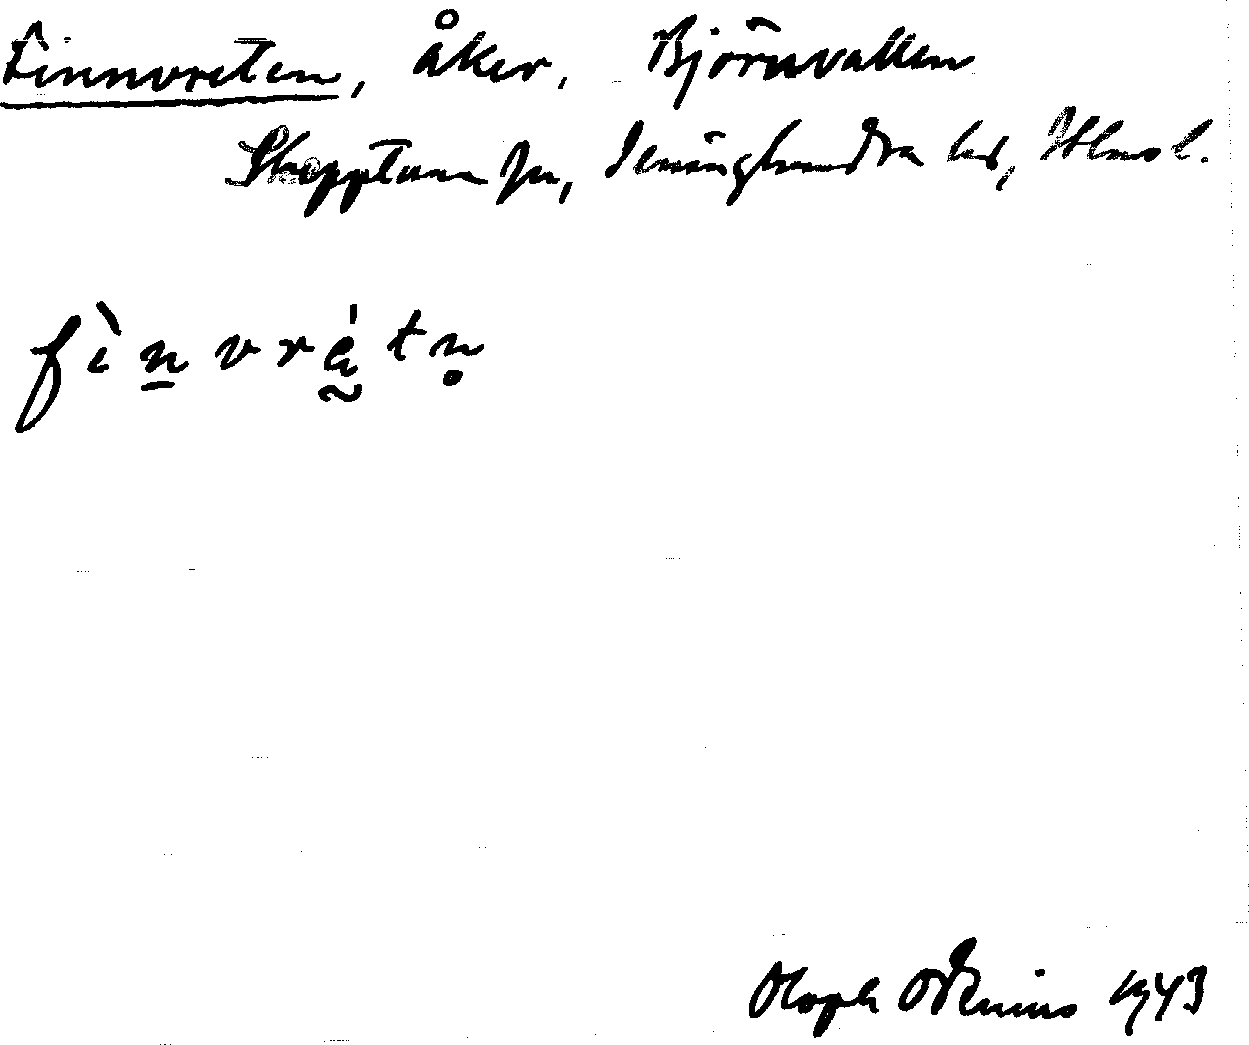 Finnvreten, åker, Björnvallen
Skepptuna sn, Seminghundra hd, Uppl.
fìnvrétn
Oloph Odenius 1943